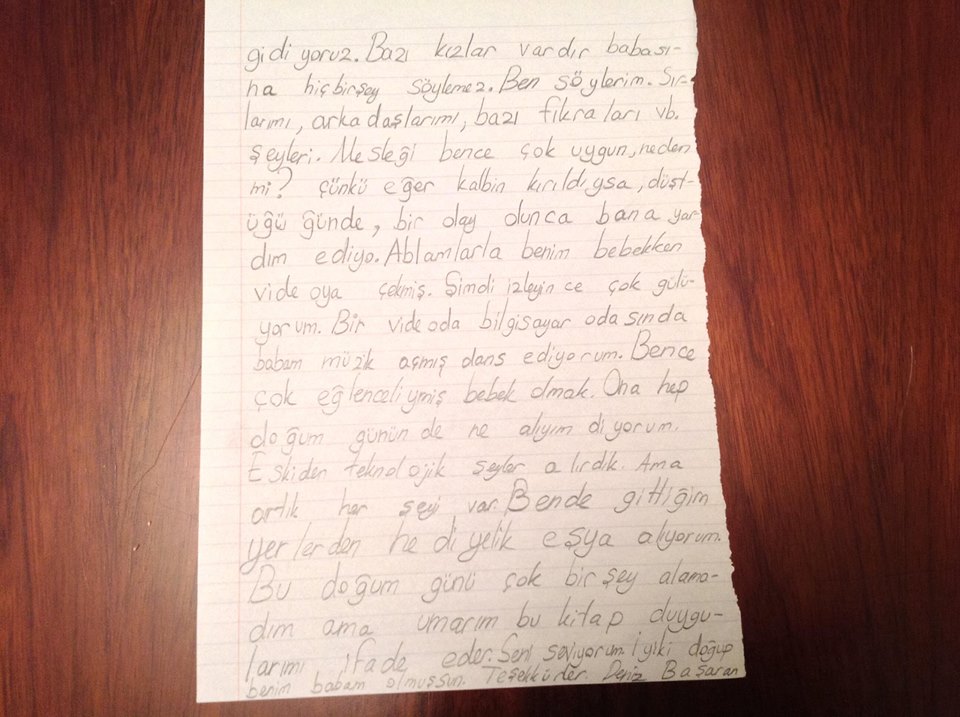 gidiyoruz. Bazı kızlar vardır babası-
na hiçbirşey söylemez. Ben söylerim. Sır-
larımı, arkadaşlarımı, bazı fıkraları vb.
şeyleri. Mesleği bence çok uygun, neden
mi? çünkü eğer kalbin kırıldıysa, düşt-
üğü ğünde, bir olay olunca bana yar-
dım ediyo. Ablamlarla benim bebekken
videoya çekmiş. Şimdi izleyince çok gülü-
yorum. Bir videoda bilgisayar odasında
babam müzik açmış dans ediyorum. Bence
çok eğlenceliymiş bebek olmak. Ona hep
doğum gününde ne alıyım diyorum.
Eskiden teknolojik şeyler alırdık. Ama
artık her şeyi var. Bende gittiğim
yerlerden hediyelik eşya alıyorum.
Bu doğum günü çok birşey alama-
dım ama umarım bu kitap duygu-
larımı ifade eder. Seni seviyorum. İyiki doğup
benim babam olmuşsun. Teşekkürler Deniz Başaran